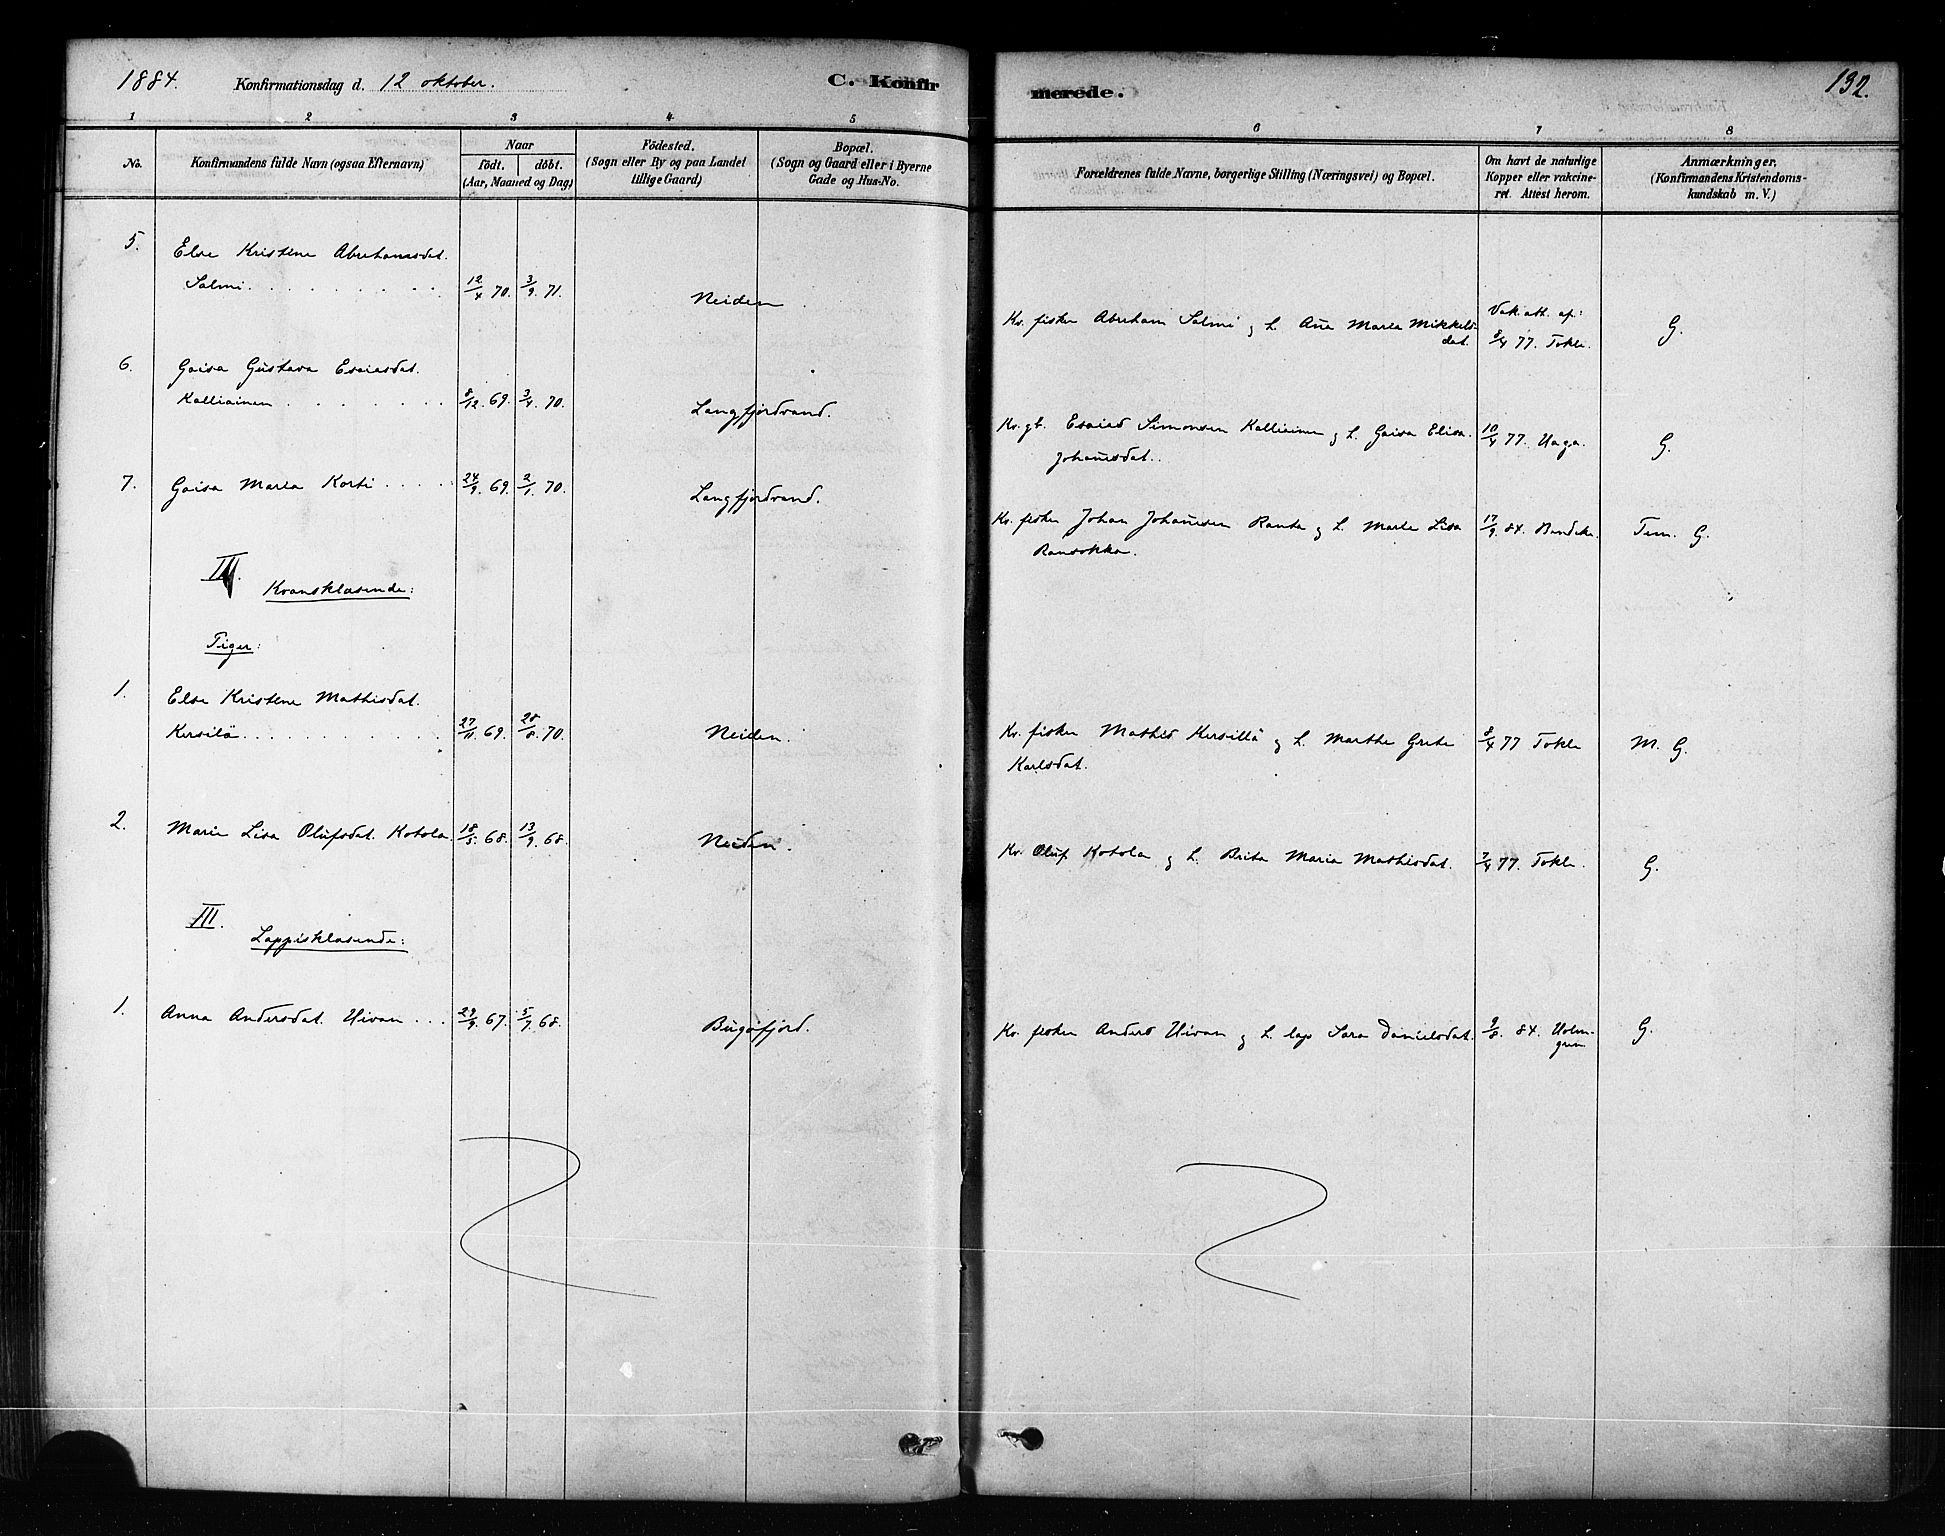 1884. Konfirmationsdag d. 12 oktober. C. Konfirmerede. 132.
1 2 3 4 5 6 7 8
No. Konfirmandens fulde Navn (ogsaa Efternavn) Naar födt. döbt. (Aar, Maaned og Dag) Födested. (Sogn eller By og paa Landet tillige Gaard) Bopæl. (Sogn og Gaard eller i Byerne Gade og Hus-No. Forældrenes fulde Navne, borgerlige Stilling (Næringsvei) og Bopæl. Om havt de naturlige Kopper eller vakcineret. Attest herom. Anmærkninger, (Konfirmandens Kristendomskundskab m. V.)
5. Else Kristine Abrahamsdat.
Salmi. 12/4 70. 3/9. 71. Neiden Kv. fisker Abraham Salmi og h. Ana Maria Mikkelsdat. Vak. att. af: 8/4 77. Tokle. G.
6. Gaisa Gustava Esaiasdat.
Kalliainen 8/12. 69. 3/4. 70. Langfjordvand. Kv. gb. Esaias Simonsen Kalliainen og h. Gaisa Elisa Johansdat. 10/4 77. G.
7. Gaisa Maria Korti 24/9. 69. 2/1. 70. Langfjordvand. Kv. fisker Johan Johansen Ranta og h. Maria Lisa 17/9. 84. Tem. G.
II. Kvænsklæsende:
Piger:
1. Else Kristine Mathisdat.
Kersilä 27/11. 69. 28/8. 70. Neiden. Kv. fisker Mathis Kersillä og h. Marthe Grete Karlsdat. 8/4 77 Tokle M. G.
2. Maria Lisa Olufsdat. Kotola. 18/5. 68. 13/9. 68. Neiden. Kv. Oluf Kotola og h. Brita Maria Mathisdat. 7/4 77. Tokle. G.
III. Lappisklæsende:
1. Anna Andersdat. Uivan 29/9. 67. 5/7. 68. Bugøfjord. Kv. fisker Anders Uivan og h. lap Sara Danielsdat. 9/8. 84. G.